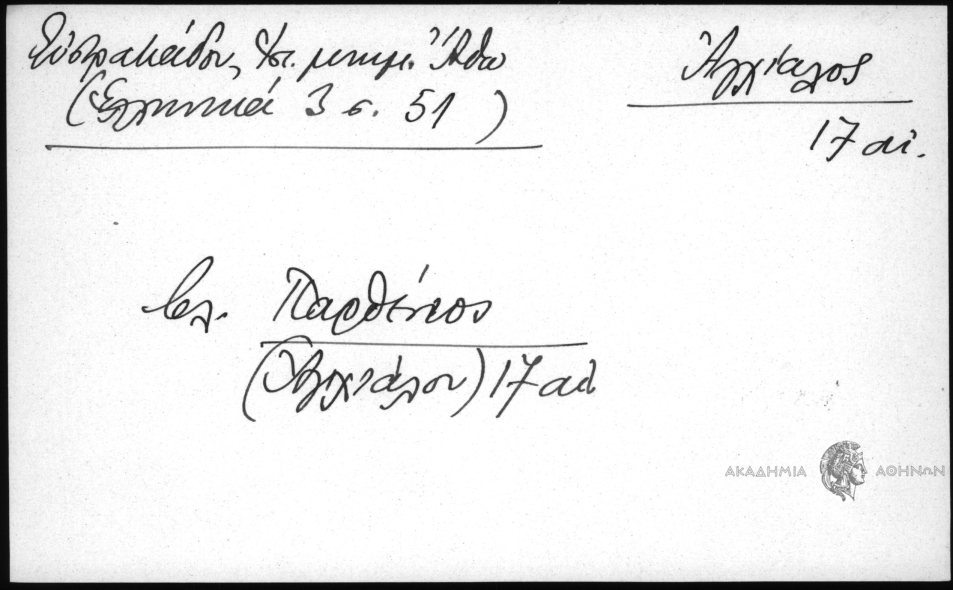 Εὐστρατιάδου, Ἱστ. μνημ. Ἄθω
(Ἑλληνικά 3 σ. 51)
Ἀγχίαλος
17 αἰ.
βλ. Παρθένιος
(Ἀγχιάλου) 17 αἰ
ΑΚΑΔΗΜΙΑ ΑΘΗΝΩΝ